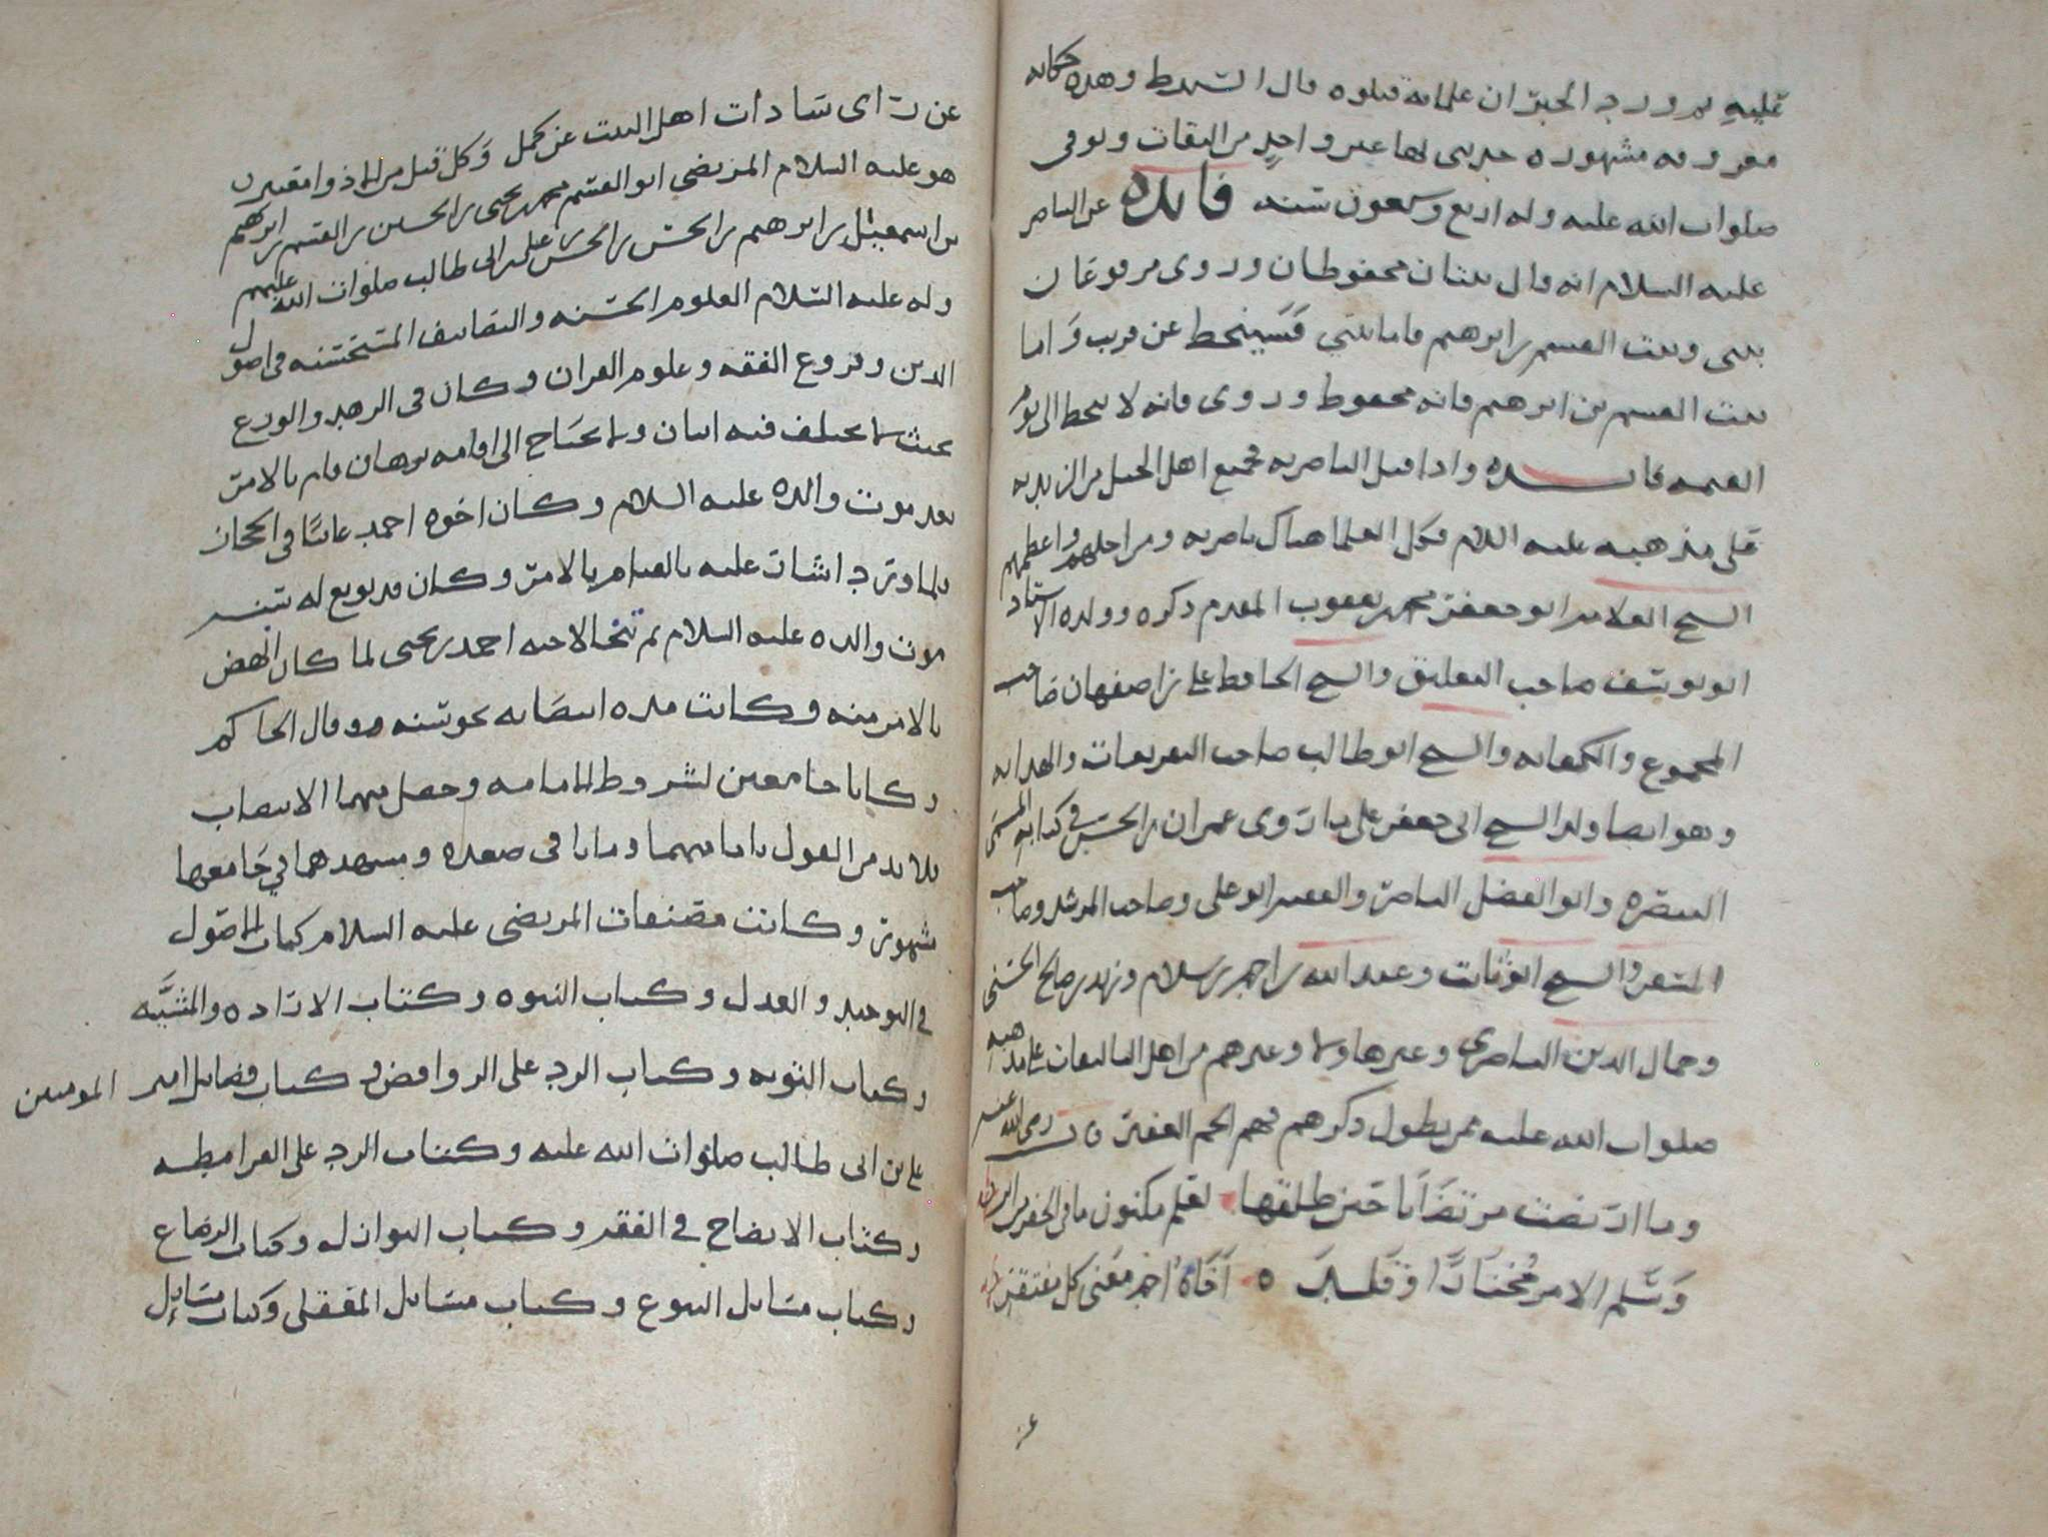 عليه ثم ورد الخبر ان علمانه قتلوه قال السيد ط وهذه حكايه
معروفه مشهوره حدثني بها غير واحدٍ من الثقات وتوفي
صلوات الله عليه وله اربع وسبعون سنه فائده عن الناصر
عليه السلام انه قال بيتان محفوظان وروى مرفوعان
بيتي وبيت القسم بن ابرهيم فاما بيتي فسينحط عن قريب وَاما
بيت القسم بن ابرهيم فانه محفوظ وروى فانه لا ينحط الى يوم
القيمه فائده واذا قيل الناصريه فجميع اهل الجيل من الزيديه
على مذهبه عليه السلام فكل العلما هناك ناصريه ومن اجلهم واعظمهم
الشيخ العلامه ابو جعفر محمد بن يعقوب المقدم ذكره وولده الاستاد
ابو يوسف صاحب التعليق والشيخ الحافظ علي بن اصفهان صاحب
المجموع والكفايه والشيخ ابو طالب صاحب التفريعات والهدايه
وهو ايضا ولد الشيخ ابي جعفر على ما روى عمران بن الحسن في كتابه المسمى
التبصره وابو الفضل الناصر والفقيه ابو علي وصاحب المرشد وصاحب
المسفر والشيخ ابو ثابت وعبد الله بن احمد بن سلام وزيد بن صالح الحسني
وجمال الدين الناصري وغيرها ولا وغيرهم من اهل التاليفات على مذهبه
صلوات الله عليه ممن يطول ذكرهم فهم الجم الغفير رضى الله عنهم
وما ارتضت مرتضانا حين طلقها لعلم مكنون ما في الجفر من
وَسَلم الامر مُختارًا وقلد اخاهُ احمد مغني كل مفتقر
عن
عن راى سادات اهل البيت عن كمل وَكل قيل من اذ وا مقتبر
هو عليه السلام المرتضى ابو القسم محمد بن يحيى بن الحسين بن القسم بن ابرهيم
بن اسمعيل بن ابرهيم بن الحسن بن الحسن بن علي بن ابي طالب صلوات الله عليهم
وله عليه السلام العلوم الحسنه والتصانيف المستحسنه في اصول
الدين وفروع الفقه وعلوم القران وكان في الزهد والورع
بحيث لا يختلف فيه اثنان ولا يحتاج الى اقامه برهان قام بالامر
بعد موت والده عليه السلام وكان اخوه احمد غائبًا في الحجاز
فلما ورد اشار عليه بالقيام بالامر وكان قد بويع له بتيسر
موت والده عليه السلام ثم تنحا لاخيه احمد بن يحيى لما كان انهض
بالامر منه وكانت مده انتصابه نحو سنه وقال الحاكم
وكانا جامعين لشروط الامامه وحصل فيهما الانتصاب
فلا بد من القول بامامتهما وماتا في صعده ومشهدهما في جَامعها
مشهور وكانت مصنفات المرتضى عليه السلام كتاب الاصول
في التوحيد والعدل وكتاب النبوه وكتاب الاراده والمشيَّه
وكتاب التوبه وكتاب الرد على الروافض وكتاب فضائل امير المومنين
علي بن ابي طالب صلوات الله عليه وكتاب الرد على القرامطه
وكتاب الايضاح في الفقه وكتاب النوازل وكتاب الرضاع
وكتاب مسَائل البيوع وكتاب مسَائل المعقلي وكتاب مسَائل